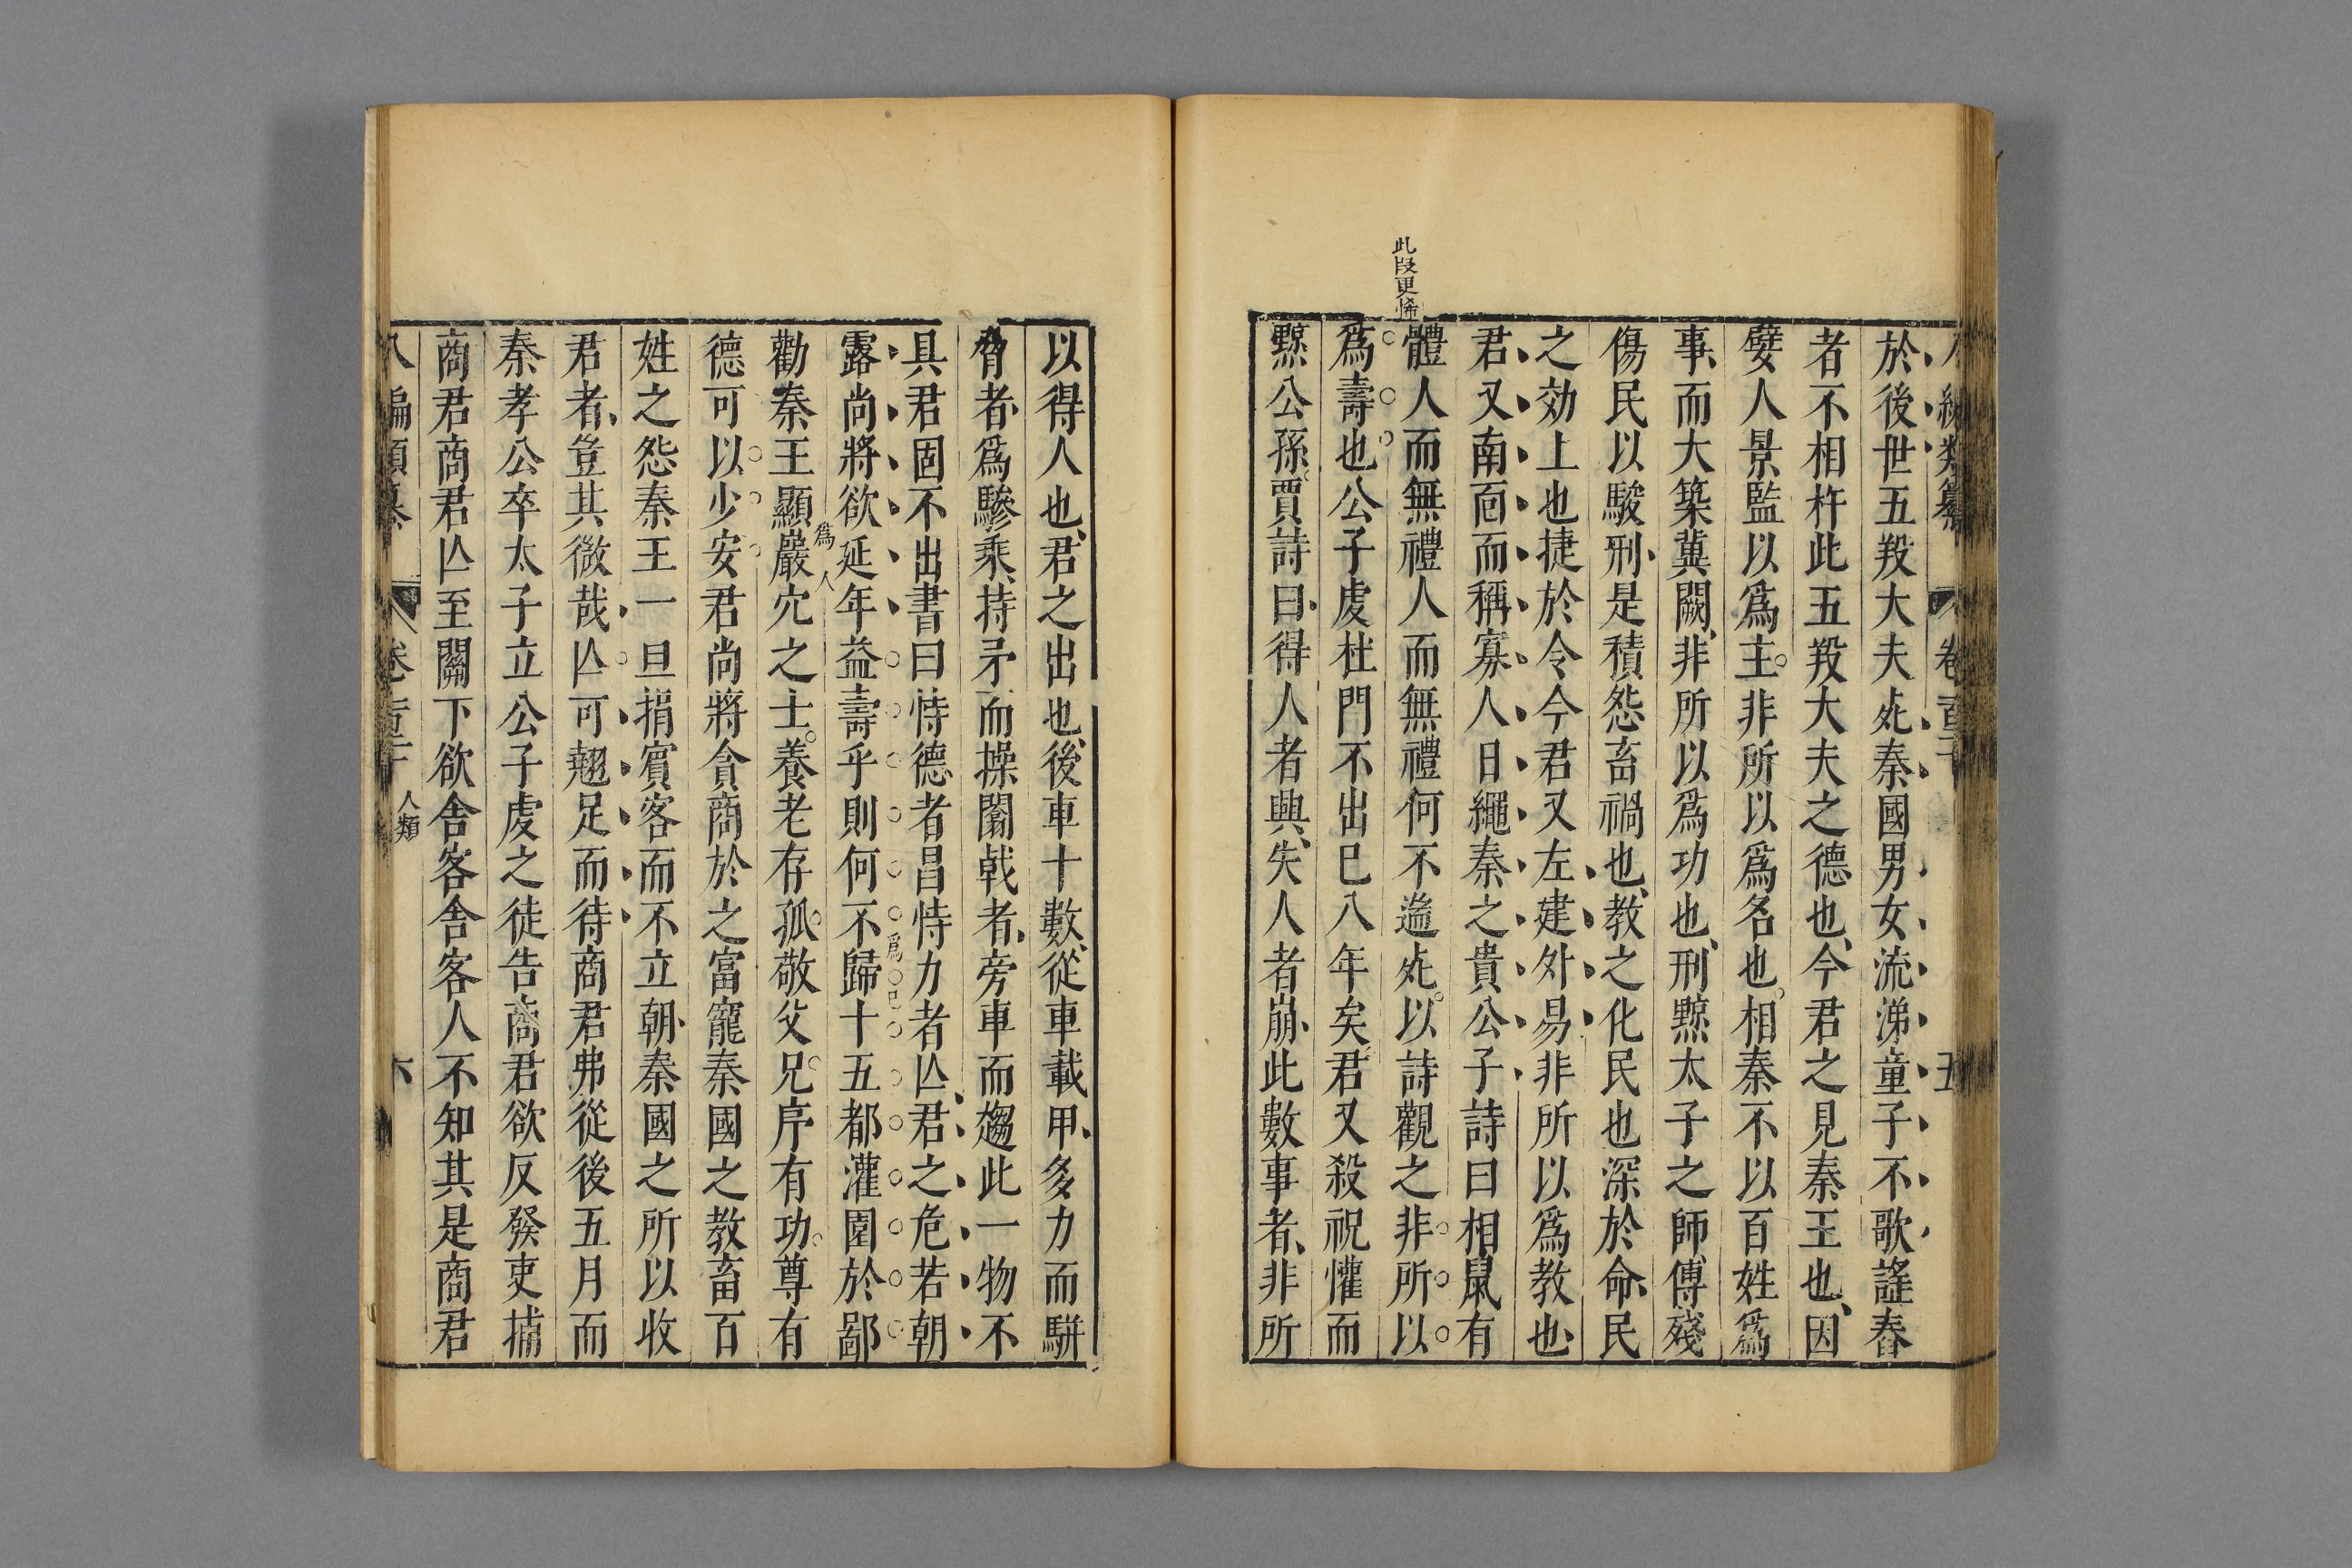 於後世五羖大夫死秦國男女流涕童子不歌謠舂
者不相杵此五羖大夫之德也今君之見秦王也因
嬖人景監以爲主非所以爲名也相秦不以百姓爲
事而大築冀闕非所以爲功也刑黥太子之師傅殘
傷民以駿刑是積怨畜禍也教之化民也深於命民
之効上也捷於令今君又左建外易非所以爲教也
君又南面而稱寡人日繩秦之貴公子詩曰相鼠有
此段更悕
體人而無禮人而無禮何不遄死以詩觀之非所以
爲壽也公子虔杜門不出已八年矣君又殺祝懽而
黥公孫賈詩曰得人者興失人者崩此數事者非所
以得人也君之出也後車十數從車載甲多力而駢
脅者爲驂乘持矛而操闟戟者旁車而趨此一物不
具君固不出書曰恃德者昌恃力者亾君之危若朝
露尚將欲延年益壽乎則何不歸十五都灌園於鄙
勸秦王顯巖穴之士養老存孤敬父兄序有功尊有
德可以少安君尚將貪商於之富寵秦國之教畜百
姓之怨秦王一旦捐賓客而不立朝秦國之所以收
君者豈其微哉亾可翹足而待商君弗從後五月而
秦孝公卒太子立公子虔之徒告商君欲反發吏捕
商君商君亾至關下欲舍客舍客人不知其是商君
卷
人類
六